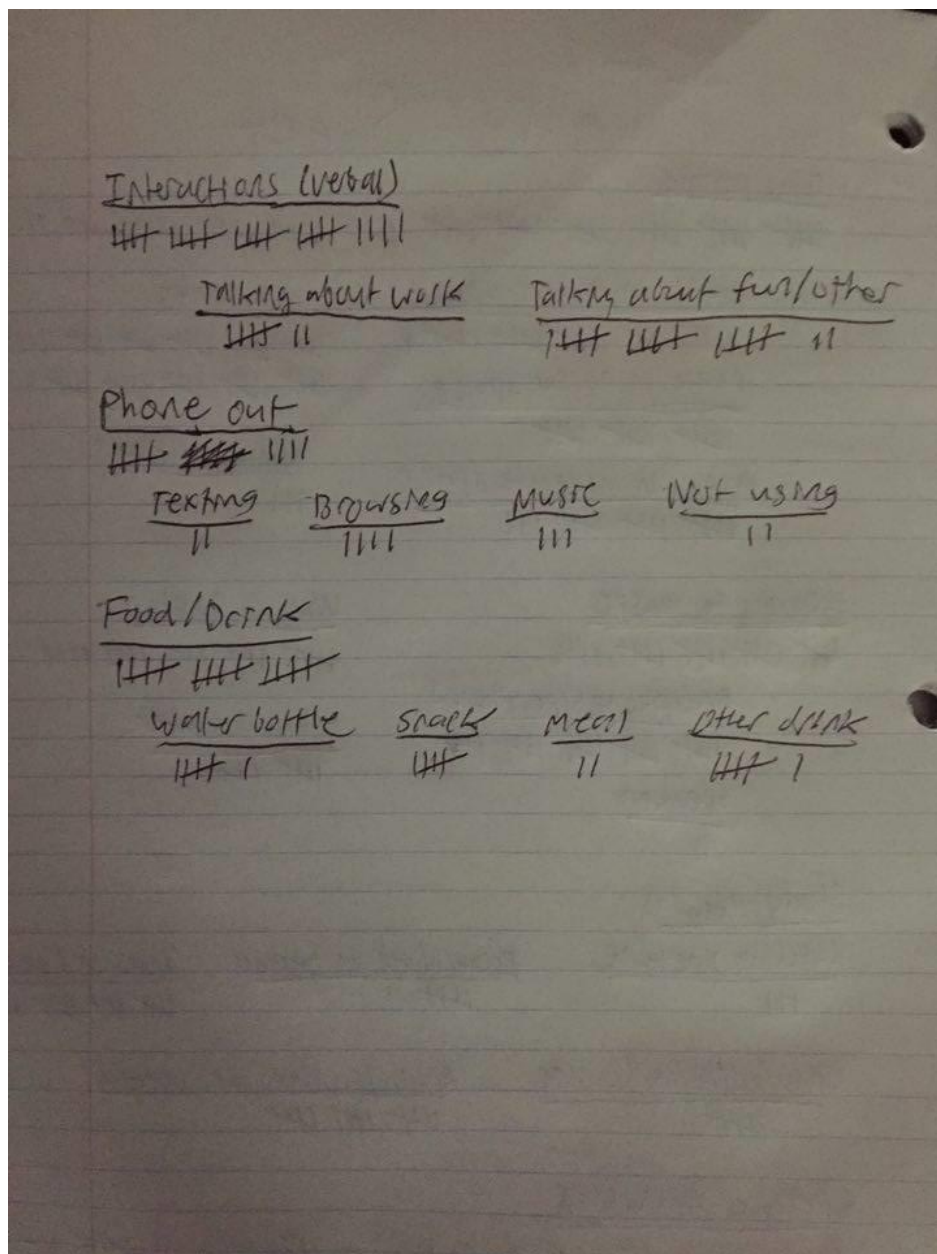 Interactions (verbal)
Talking about work Talking about fun/other
Phone out
Texting Browsing Music Not using
Food/Drink
Water bottle Snack Meal Other drink